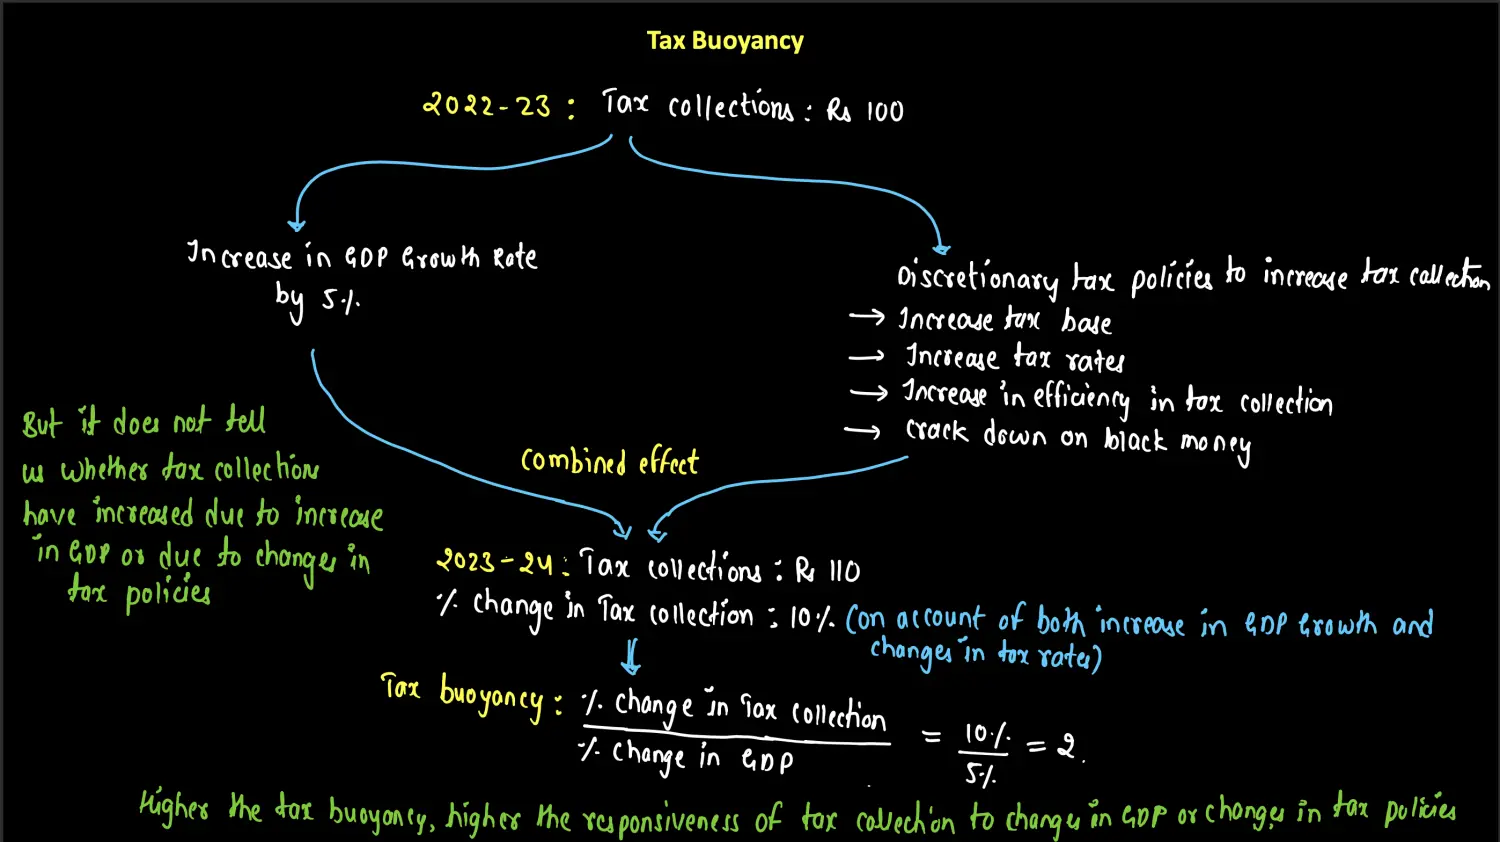 Tax Buoyancy
2022-23 : Tax collections : Rs 100
Increase in GDP Growth Rate
by 5%
Discretionary tax policies to increase tax collection
→ Increase tax base
→ Increase tax rates
→ Increase in efficiency in tax collection
→ Crack down on black money
But it does not tell
us whether tax collections
have increased due to increase
in GDP or due to changes in
tax policies
Combined effect
2023-24 : Tax collections : Rs 110
% change in Tax collection : 10% (on account of both increase in GDP Growth and
changes in tax rates)
Tax buoyancy : % change in Tax collection
% change in GDP
= 10% / 5% = 2.
Higher the tax buoyancy, higher the responsiveness of tax collection to changes in GDP or changes in tax policies